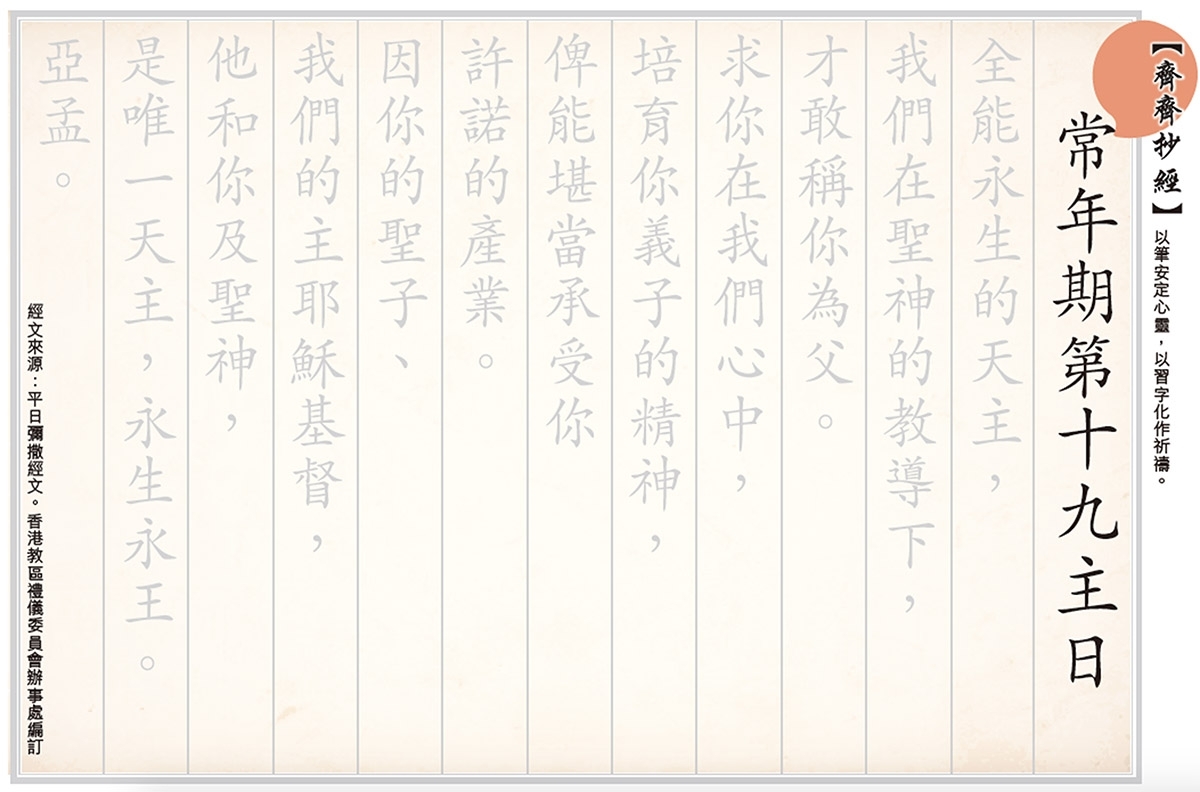 【齊齊抄經】以筆安定心靈，以習字化作祈禱。
常年期第十九主日
全能永生的天主，
我們在聖神的教導下，
才敢稱你為父。
求你在我們心中，
培育你義子的精神，
俾能堪當承受你
許諾的產業。
因你的聖子、
我們的主耶穌基督，
他和你及聖神，
是唯一天主，永生永王。
亞孟。
經文來源：平日彌撒經文。香港教區禮儀委員會辦事處編訂